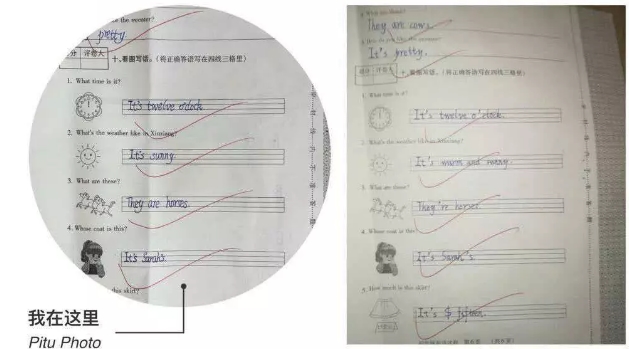 the monster?
pretty
分 评卷人
十、看图写话。(将正确答语写在四线三格里)
1. What time is it?
It's twelve o'clock.
2. What's the weather like in Xinjiang?
It's sunny.
3. What are these?
They are horses.
4. Whose coat is this?
It's Sarah's.
this skirt?
我在这里
Pitu Photo
They are cows.
It's pretty.
得分 评卷人
十、看图写话。(将正确答语写在四线三格里)
1. What time is it?
It's twelve o'clock.
2. What's the weather like in Xinjiang?
It's warm and sunny.
3. What are these?
They're horses.
4. Whose coat is this?
It's Sarah's.
5. How much is the skirt?
It's $